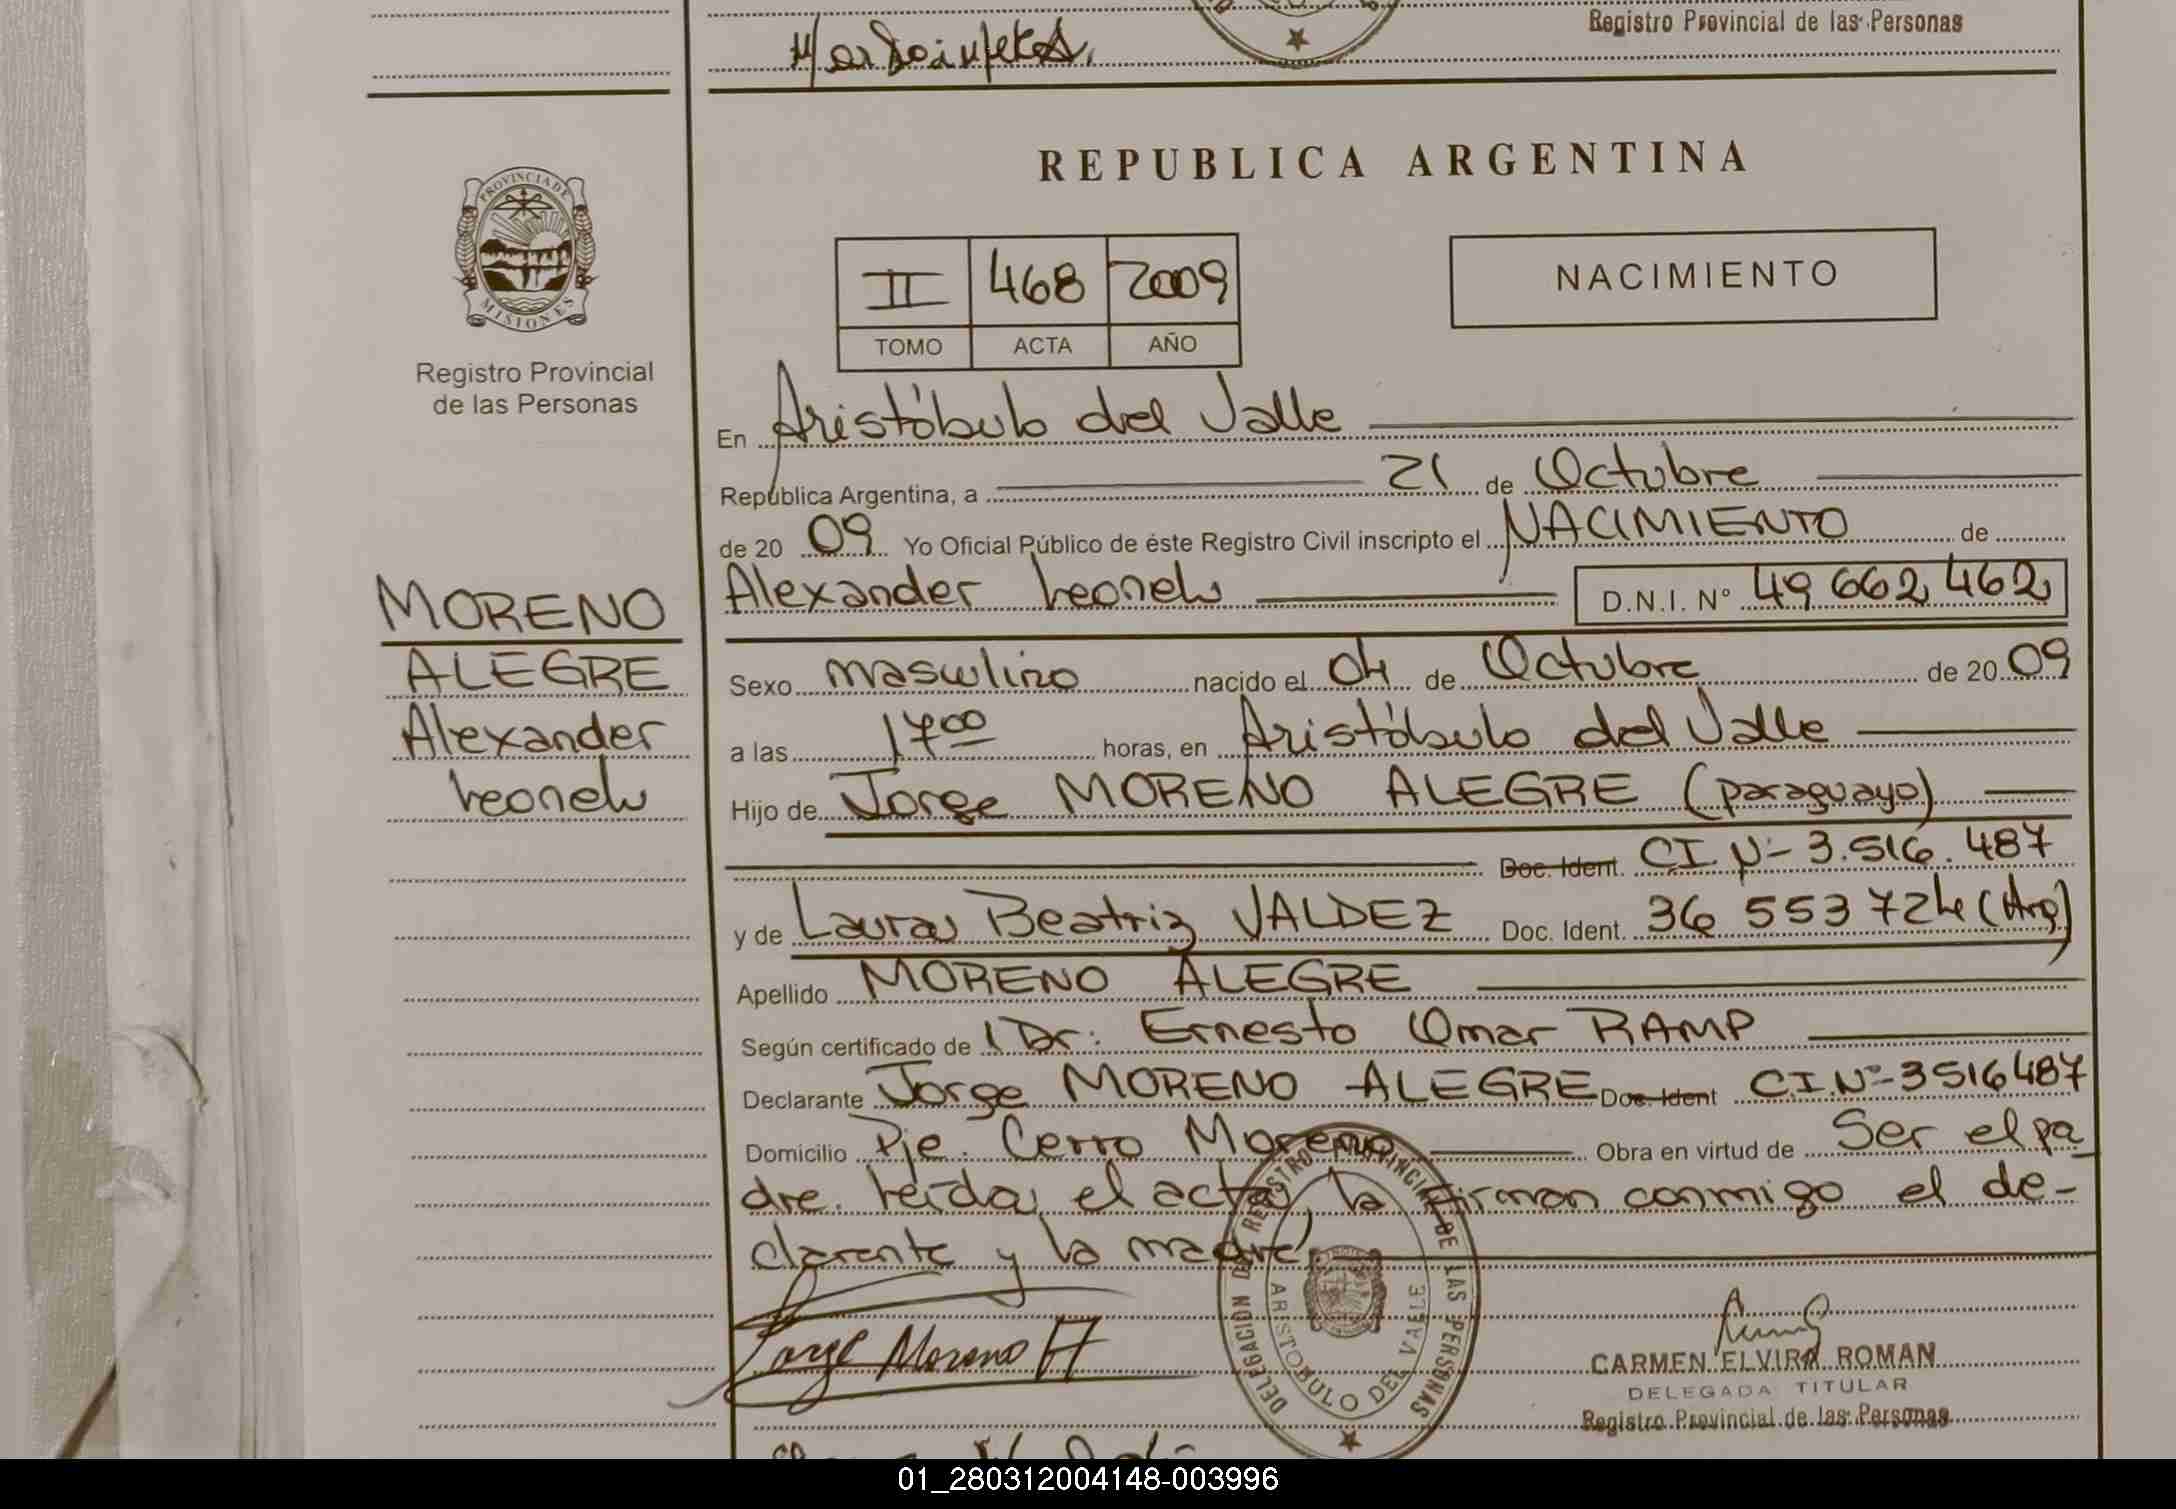 Registro Provincial de las Personas
REPUBLICA ARGENTINA
PROVINCIA DE
MISIONES
Registro Provincial
de las Personas
II 468 2009
TOMO ACTA AÑO
NACIMIENTO
En Aristóbulo del Valle
República Argentina, a 21 de Octubre
de 20 09 Yo Oficial Público de éste Registro Civil inscripto el NACIMIENTO de
Alexander Leonel D.N.I. N° 49 662 462
MORENO
ALEGRE
Alexander
Leonel
Sexo masculino nacido el 04 de Octubre de 20 09
a las 17 00 horas, en Aristóbulo del Valle
Hijo de Jorge MORENO ALEGRE (paraguayo)
Doc. Ident. CI. Nº 3.516.487
y de Laura Beatriz VALDEZ Doc. Ident. 36 553 724 (Arg)
Apellido MORENO ALEGRE
Según certificado de Dr: Ernesto Omar RAMP
Declarante Jorge MORENO ALEGRE Doc. Ident C.I. Nº 3516487
Domicilio Pje. Cerro Moreno Obra en virtud de Ser el pa
dre. Leída el acta, la firman conmigo el de-
clarante y la madre
Jorge Moreno A
DELEGACION DEL REGISTRO PROVINCIAL DE LAS PERSONAS
ARISTOBULO DEL VALLE
CARMEN ELVIRA ROMAN
DELEGADA TITULAR
Registro Provincial de las Personas
01_280312004148-003996